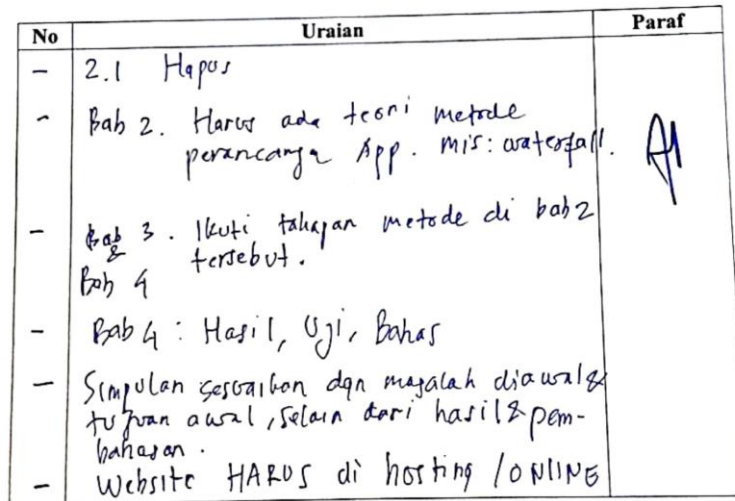 No Uraian Paraf
- 2.1 Hapus
- Bab 2. Harus ada teori metode
perancanga App. mis: waterfall.
- Bab 3. Ikuti tahapan metode di bab 2
& tersebut.
Bab 4
- Bab 4: Hasil, Uji, Bahas
- Simpulan sesuaikan dgn masalah diawal &
tujuan awal, selain dari hasil & pem-
bahasan.
- Website HARUS di hosting / ONLINE